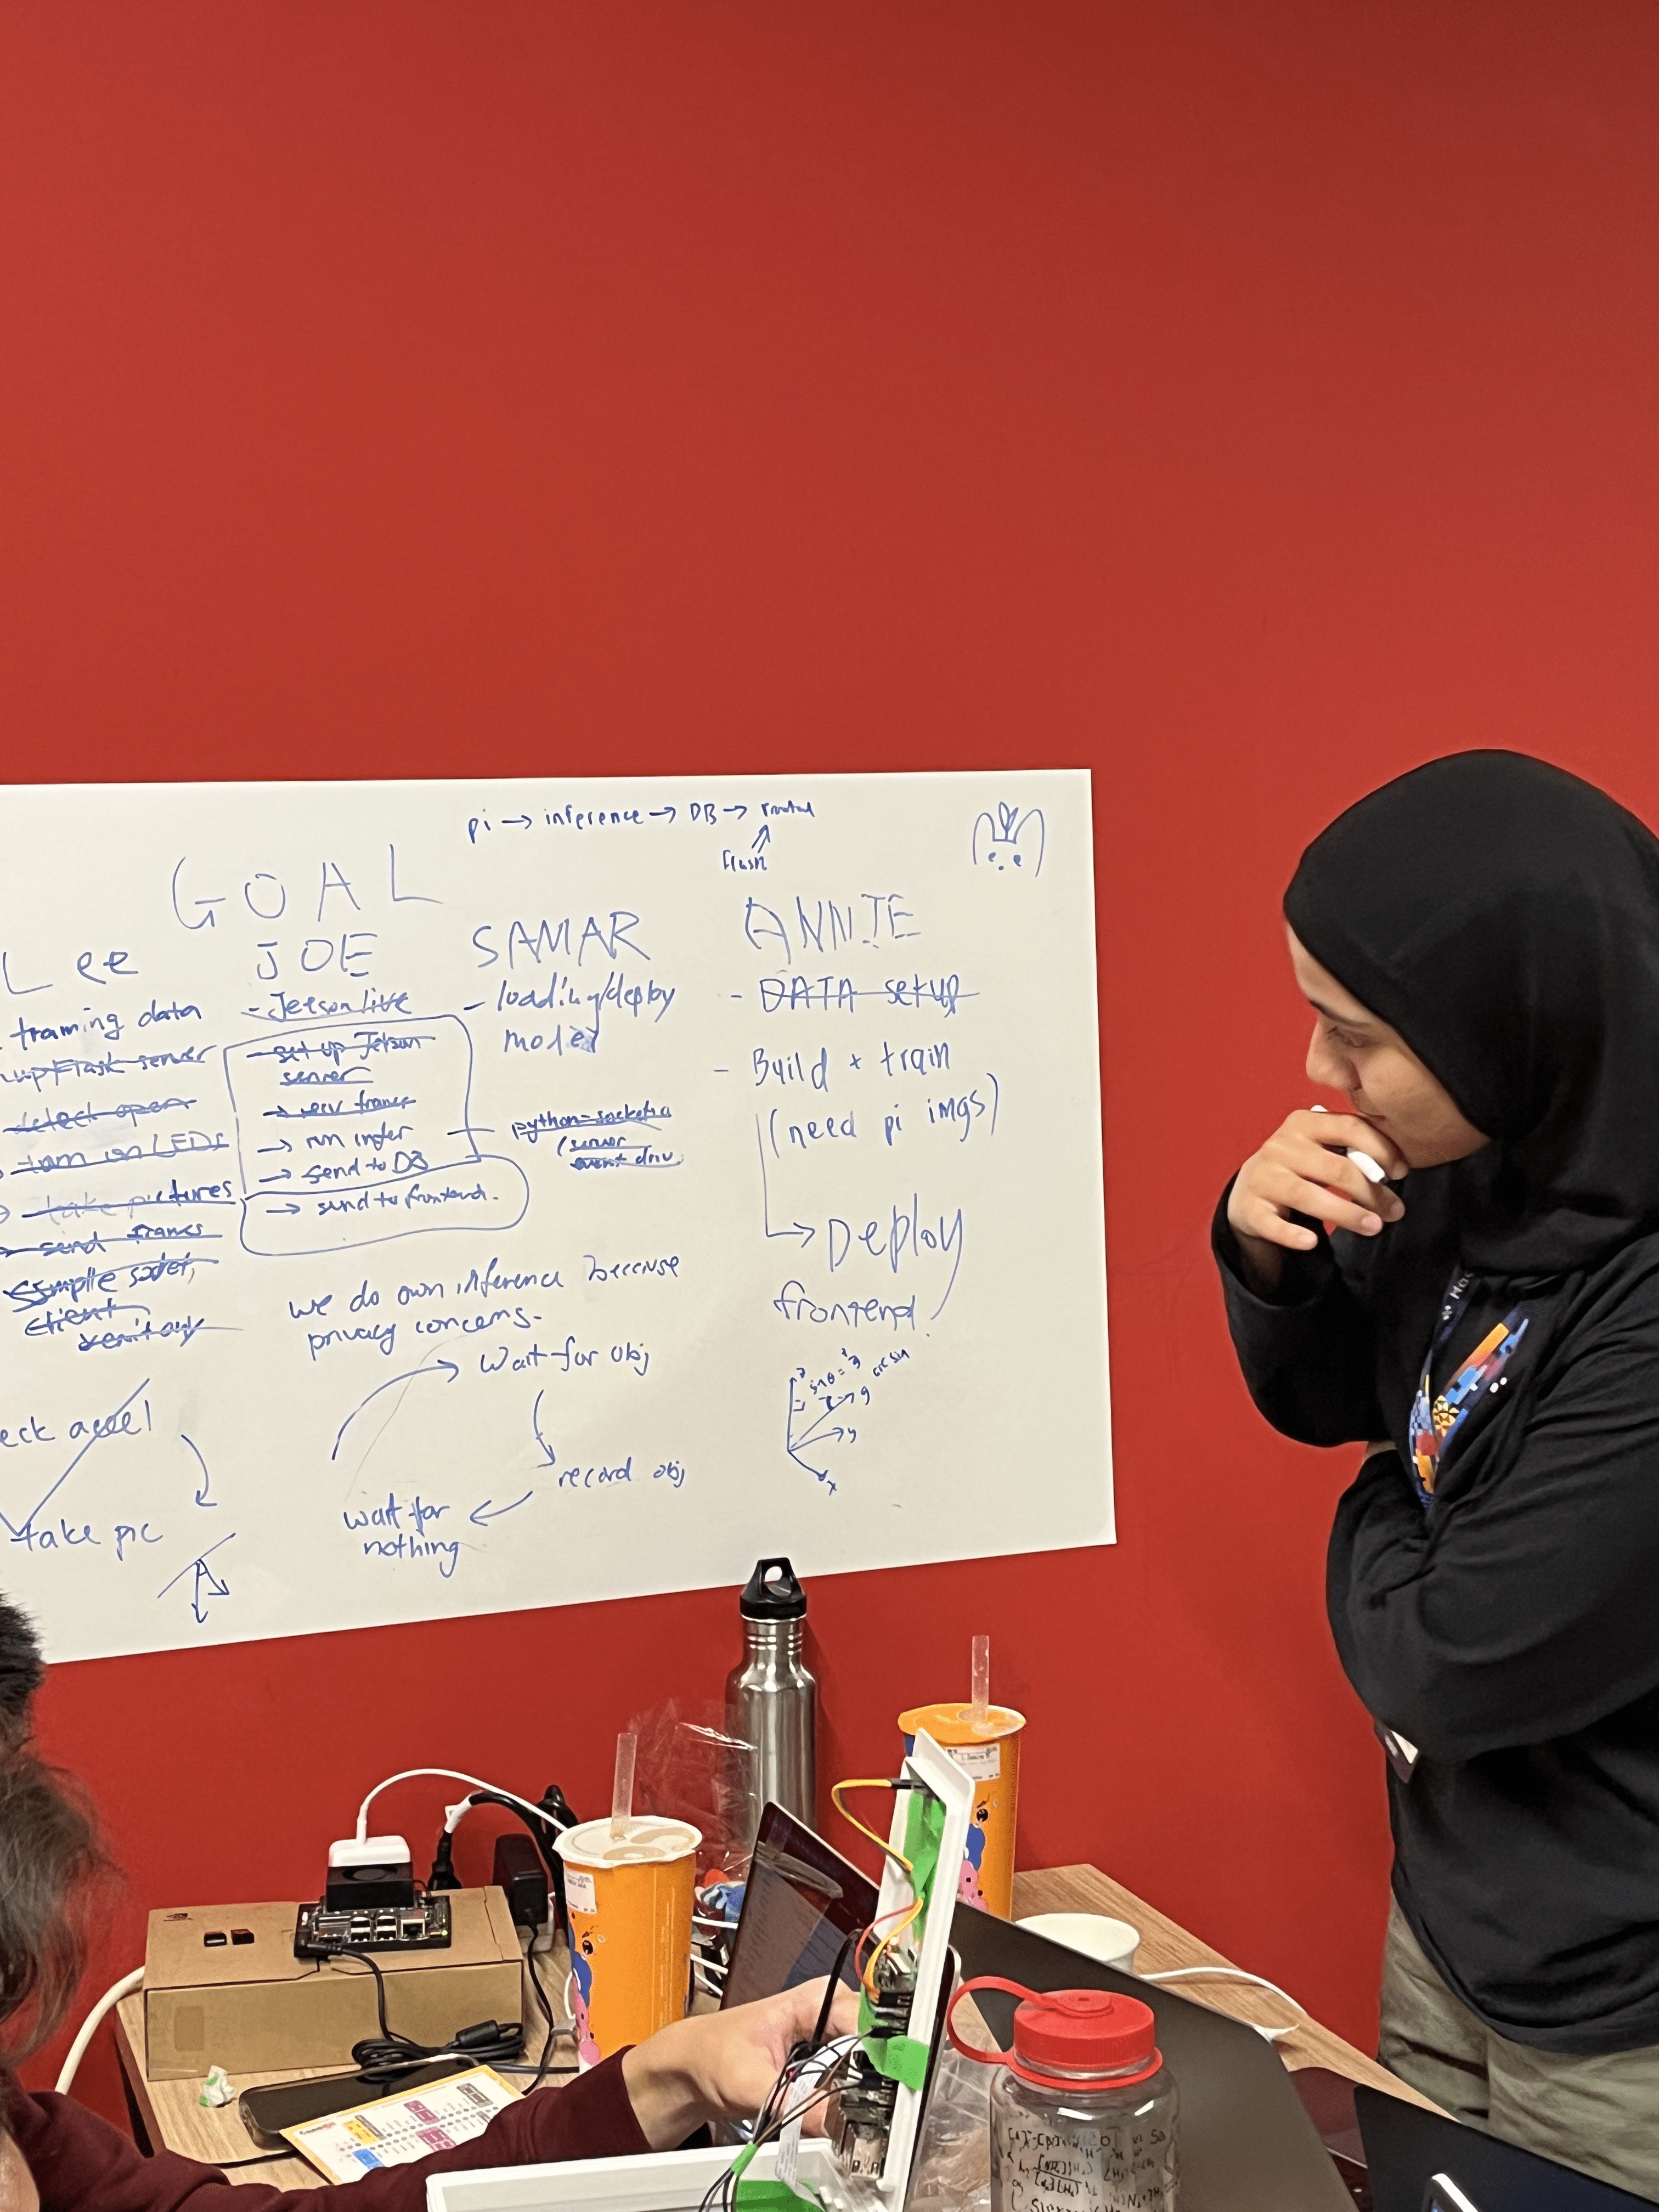 pi → inference → DB →
flash
GOAL
Lee
training data
up Flask server
detect open
turn on LEDs
take pictures
send frames
simple socket,
client
JOE
- Jetson live
- set up Jetson
server
→ recv frames
→ run infer
→ send to DB
→ send to frontend.
SAMAR
- loading/deploy
model
python-socketio
(server
event driv
ANNIE
- DATA setup
- Build + train
(need pi imgs)
→ Deploy
frontend
we do own inference because
privacy concerns.
wait for obj
record obj
wait for
nothing
eck accel
take pic
z
sin θ =
arcsin
g
y
x